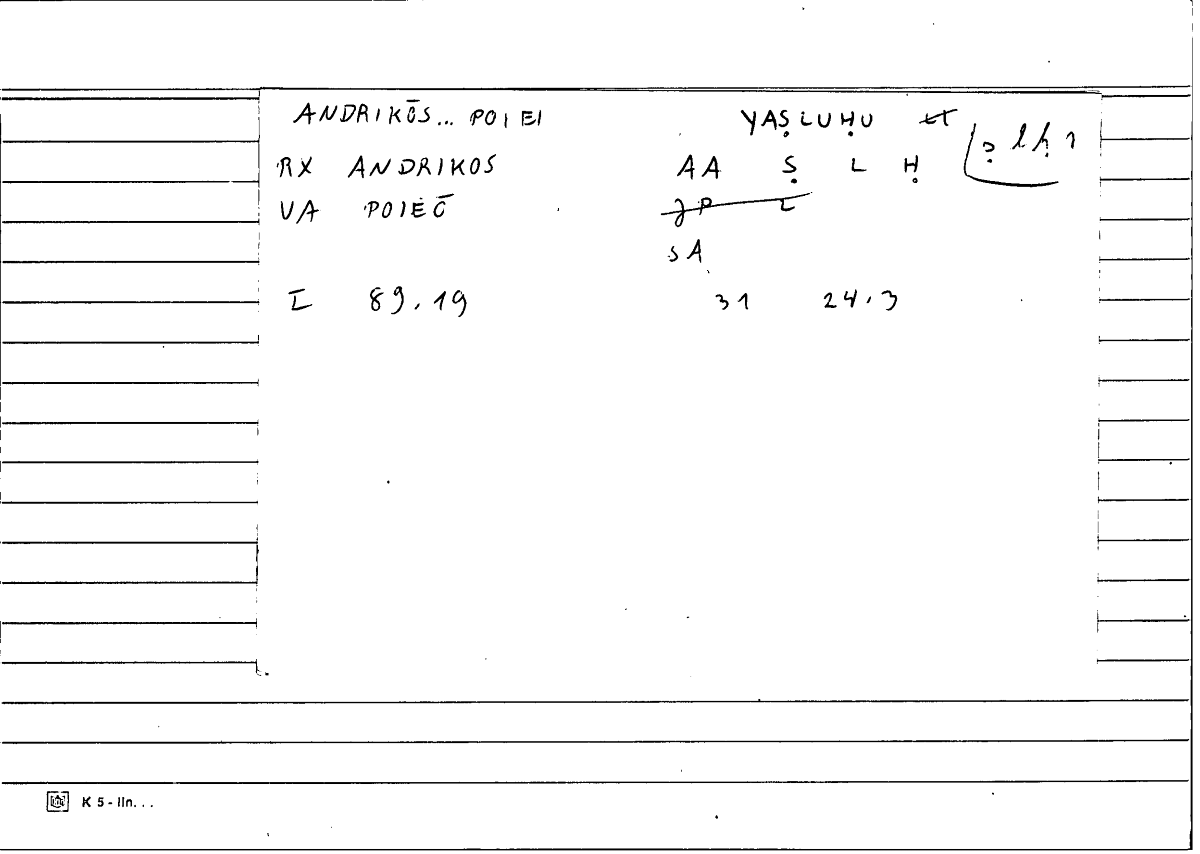 ANDRIKŌS... POIEI YAṢLUḤU
ṣ lḥ 1
RX ANDRIKOS AA Ṣ L Ḥ
VA POIEŌ
SA
I 89.19 31 24.3
K 5 - lin...